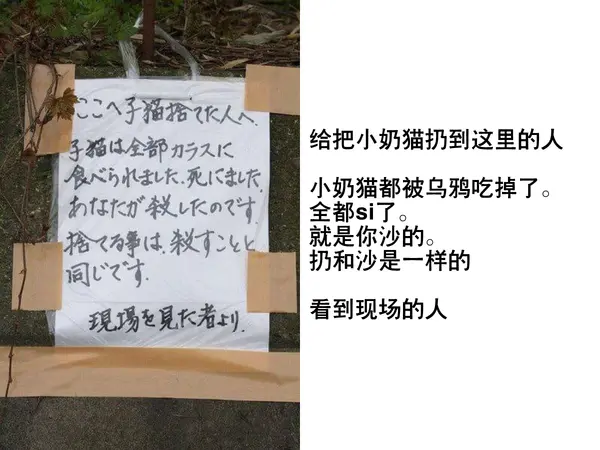 ここへ子猫捨てた人へ、
子猫は全部カラスに
食べられました、死にました、
あなたが殺したのです
捨てる事は、殺すことと
同じです.
現場を見た者より.
给把小奶猫扔到这里的人
小奶猫都被乌鸦吃掉了。
全都si了。
就是你沙的。
扔和沙是一样的
看到现场的人